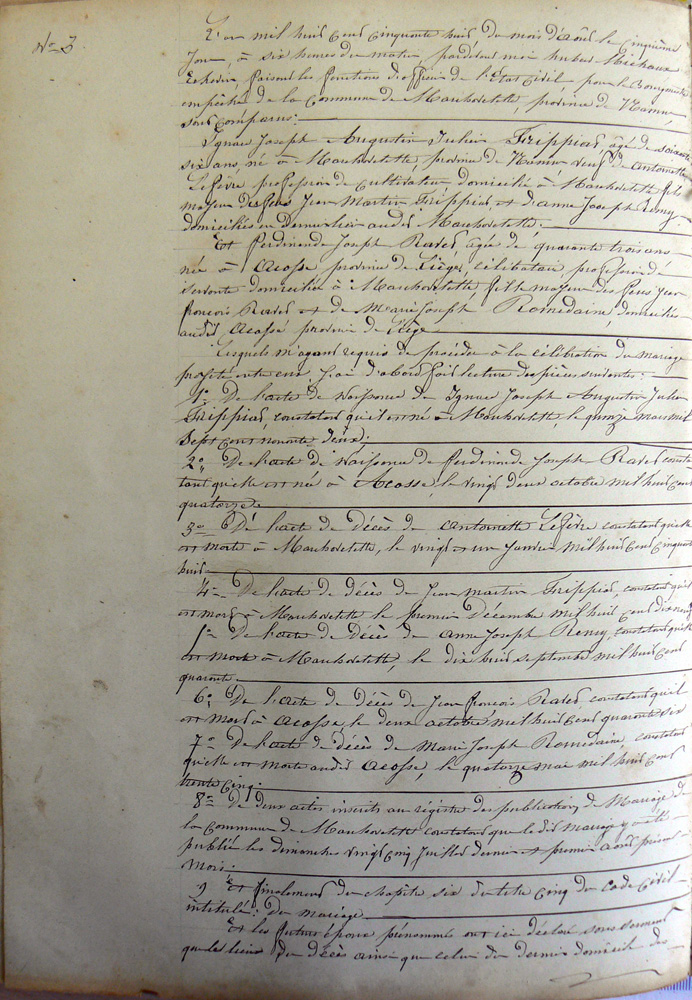 No 3
L'an mil huit cent cinquante huit du mois d'août le cinquième
Jour, à six heures du matin, pardevant moi hubert Michaux
Echevin, faisant les fonctions d'officier de l'Etat civil pour le Bourgmestre
empêché de la Commune de Manhovelette, province de Namur,
sont Comparus:
Ignace Joseph Augustin Julien Frippiat, âgé de soixante
six ans, né à province de Namur veuf de antoinette
Lefèvre profession de Cultivateur, domicilié à fils
majeur des feus Jean Martin Frippiat et d'anne Joseph Remy
domiciliés en dernier lieu audit
Et Ferdinande Joseph Ravet, agée de quarante trois ans
née à Acosse province de Liège, célibataire, profession de
servante domiciliée à fille majeur des feus Jean
françois Ravet et de Marie Joseph Romedaine, domiciliés
audit Acosse province de Liège
Lesquels m'ayant requis de procéder à la célébration du mariage
projeté entre eux j'ai d'abord fait lecture des pièces suivantes:
1o De l'acte de Naissance de Ignace Joseph Augustin Julien
Frippiat, constatant qu'il est né à le quinze mars mil
Sept cent nonante deux;
2o De l'acte de Naissance de Ferdinande Joseph Ravet consta
tant qu'elle est née à Acosse, le vingt deux octobre mil huit cent
quatorze.
3o De l'acte de Décès de antoinette Lefèvre constatant qu'elle
est morte à le vingt et un Janvier mil huit cent cinquante
huit
4o De l'acte de décès de Jean martin Frippiat, constatant qu'il
est mort à le premier Décembre mil huit cent dix neuf
De l'acte de Décès de anne Joseph Remy, constatant qu'elle
est morte à le dix huit septembre mil huit cent
quarante
6o De l'acte de Décès de Jean françois Ravet, constatant qu'il
est mort à Acosse, le deux octobre mil huit cent quarante six
7o De l'acte de décès de Marie Joseph Romedaine, constatant
qu'elle est morte audit Acosse, le quatorze mai mil huit cent
trente cinq.
8o De deux actes inscrits au régistre des publications de Mariage de
la Commune de constatant que le dit mariage y a été
publié les dimanches vingt cinq Juillet dernier et premier août présent
mois.
Et finalement du chapitre six du titre cinq du code civil
intitulé: du mariage
Et les futurs époux prénommés ont ici déclaré sous serment
que les lieux du décès ainsi que celui du dernier domicile des